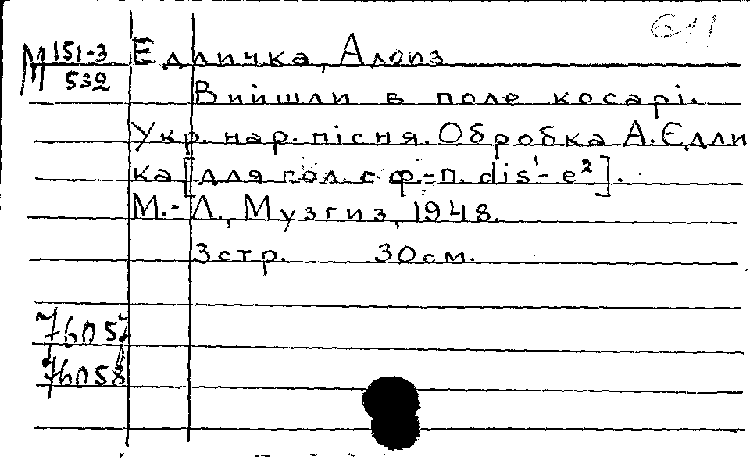 611
М 151-3
532
Едличка, Алоиз
Вийшли в поле косарі.
Укр. нар. пісня. Обробка А. Єдли
ка [для гол. с ф-п. dis¹- e²].
М.-Л., Музгиз, 1948.
3стр. 30см.
76057
76058